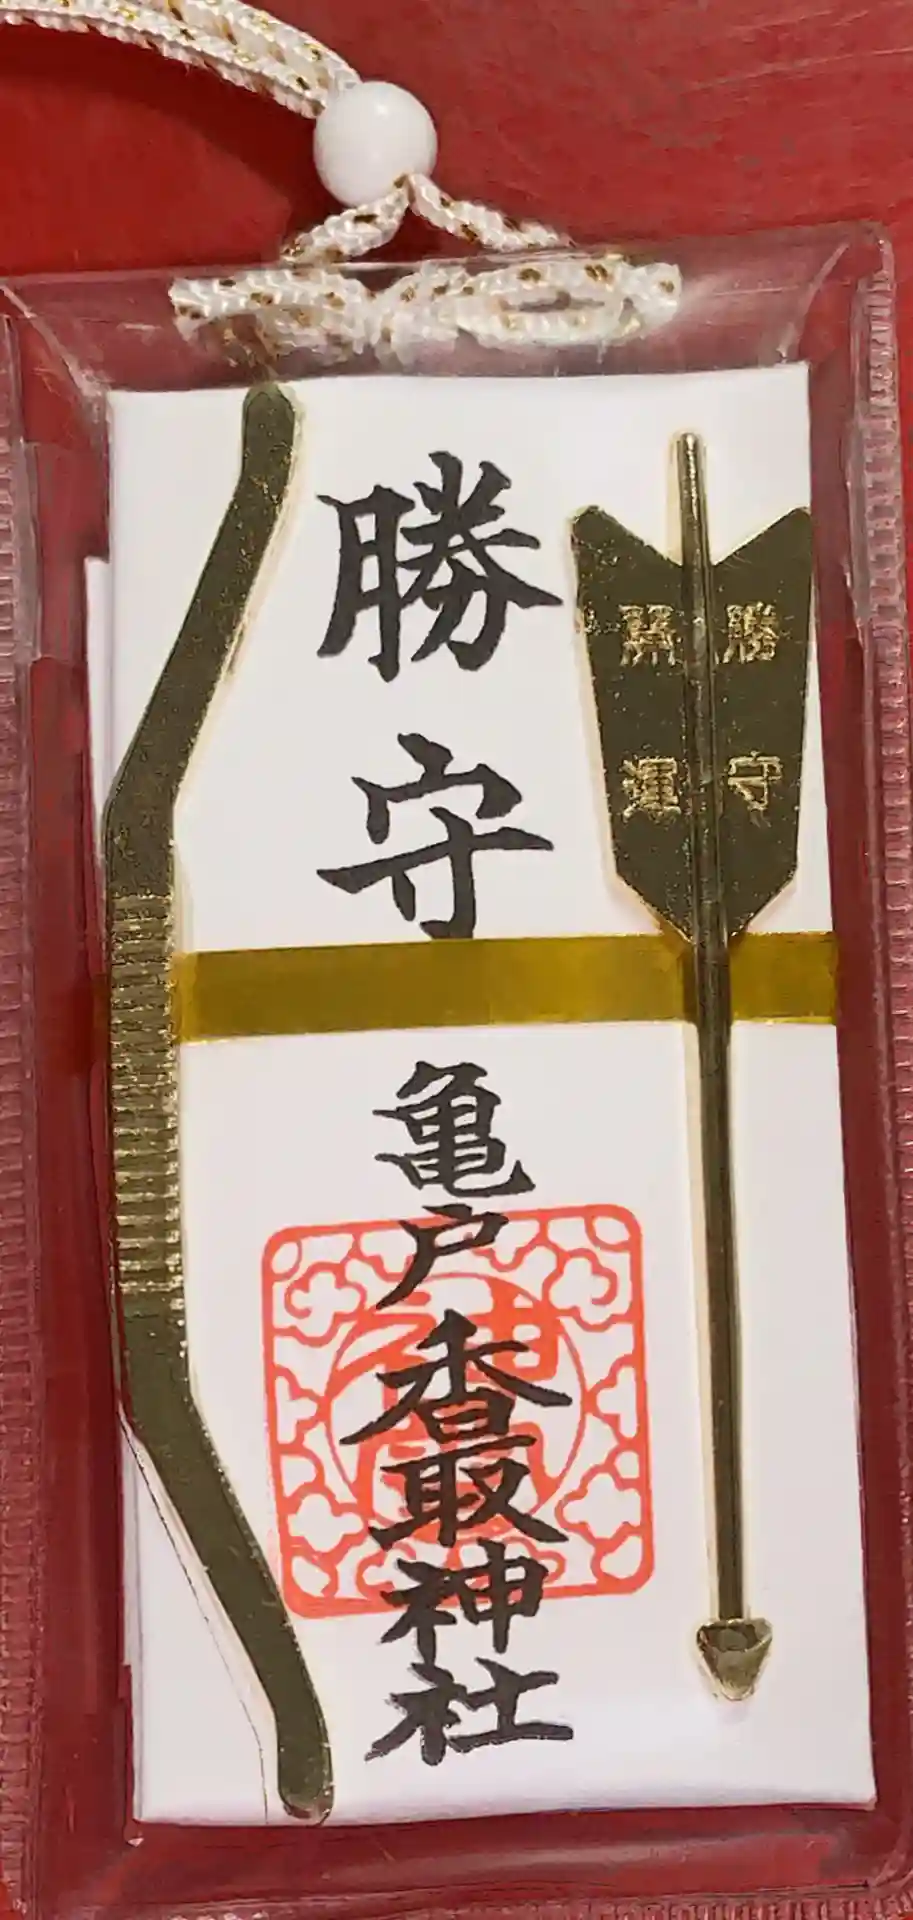 勝守
亀戸香取神社
勝守
開運